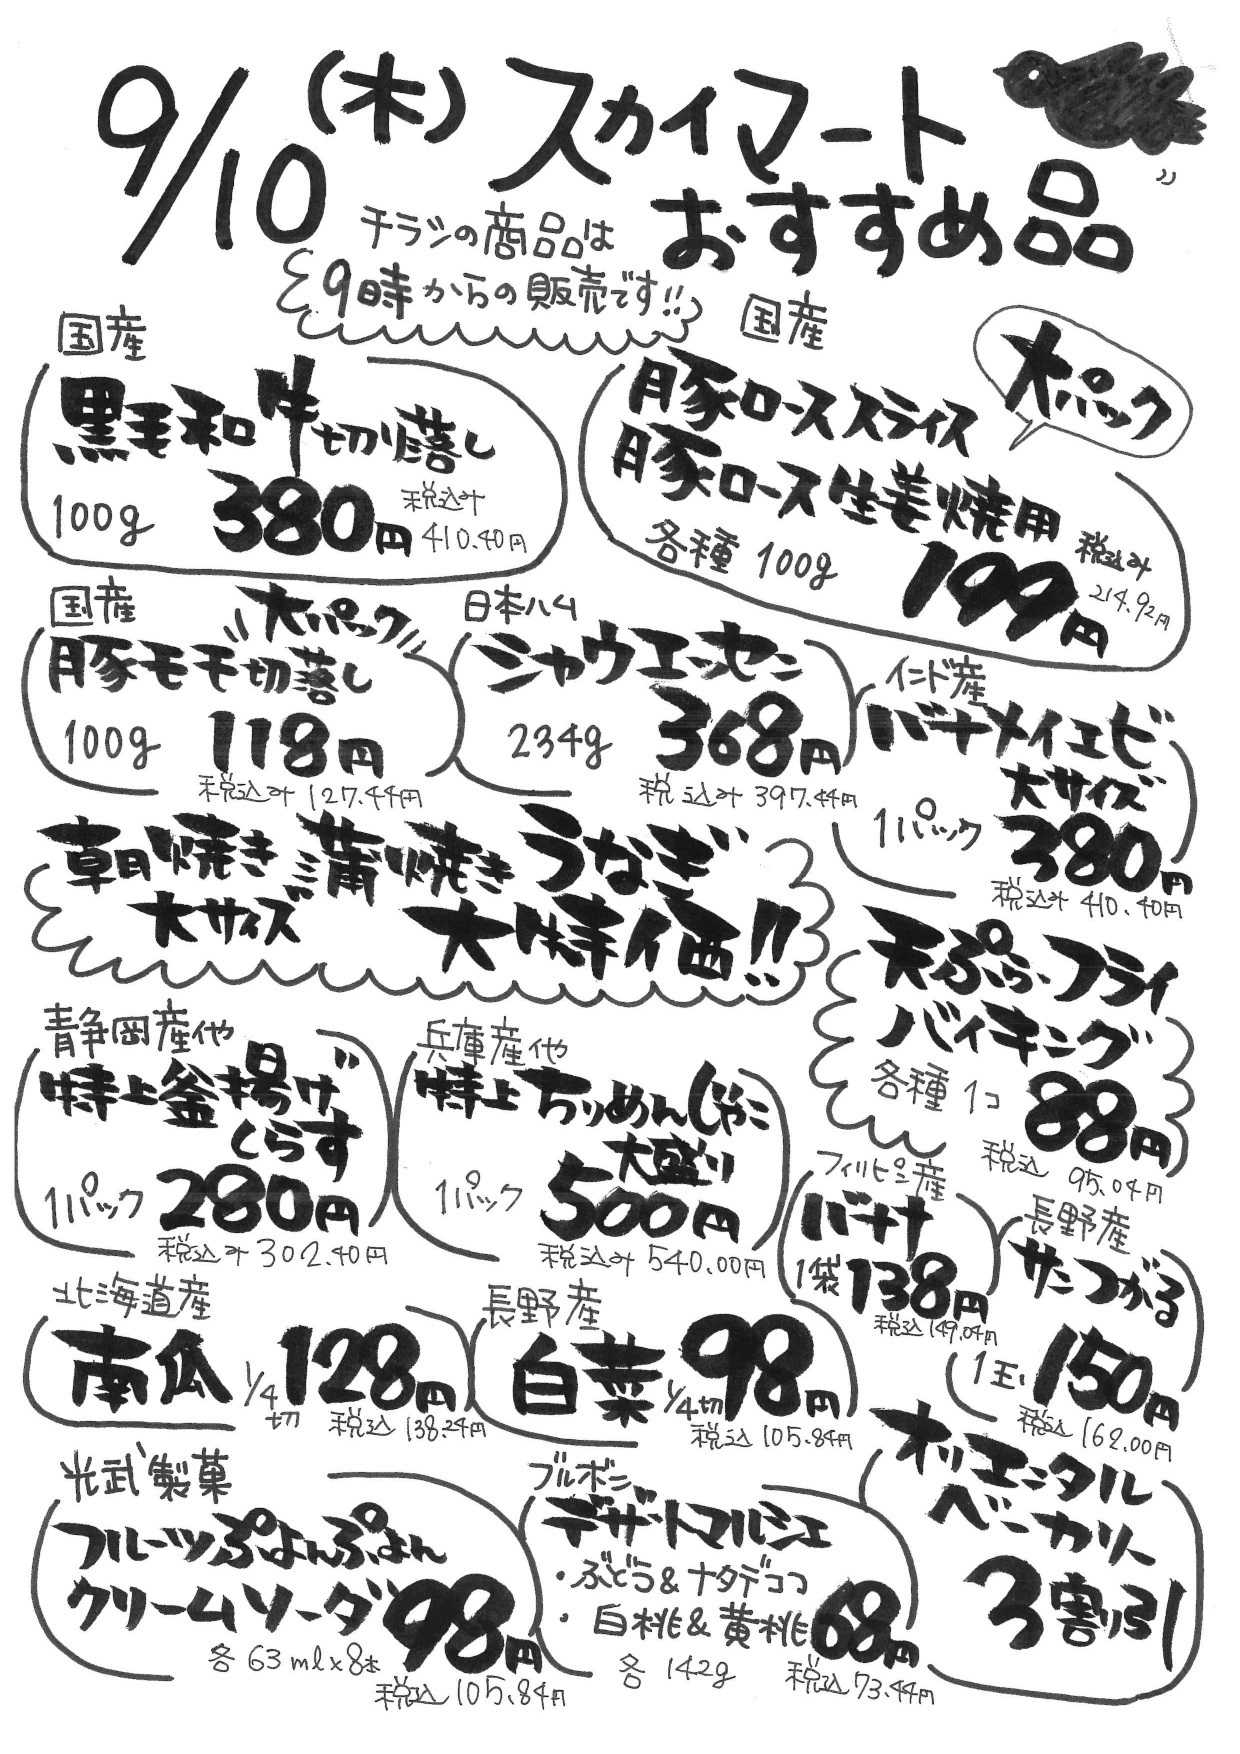 9/10(木)スカイマート
おすすめ品
チラシの商品は
9時からの販売です!!
国産
黒毛和牛切り落し
100g 380円 税込み 410.40円
国産
大パック
豚ローススライス
豚ロース生姜焼用
各種 100g 199円 税込み 214.92円
国産
大パック
豚モモ切落し
100g 118円
税込み 127.44円
日本ハム
シャウエッセン
234g 368円
税込み 397.44円
インド産
バナメイエビ
大サイズ
1パック 380円
税込み 410.40円
朝焼き 蒲焼き うなぎ
大サイズ 大特価!!
天ぷら・フライ
バイキング
各種 1コ 88円
税込 95.04円
静岡産他
特上釜揚げ
しらす
1パック 280円
税込み 302.40円
兵庫産他
特上ちりめんじゃこ
大盛り
1パック 500円
税込み 540.00円
フィリピン産
バナナ
1袋 138円
税込 149.04円
長野産
サンつがる
1玉 150円
税込 162.00円
北海道産
南瓜 1/4切 128円
税込 138.24円
長野産
白菜 1/4切 98円
税込 105.84円
光武製菓
フルーツぷよんぷよん
クリームソーダ 98円
各 63ml×8本
税込 105.84円
ブルボン
デザートマルシェ
・ぶどう&ナタデココ
・白桃&黄桃 68円
各 142g 税込 73.44円
オリエンタル
ベーカリー
3割引